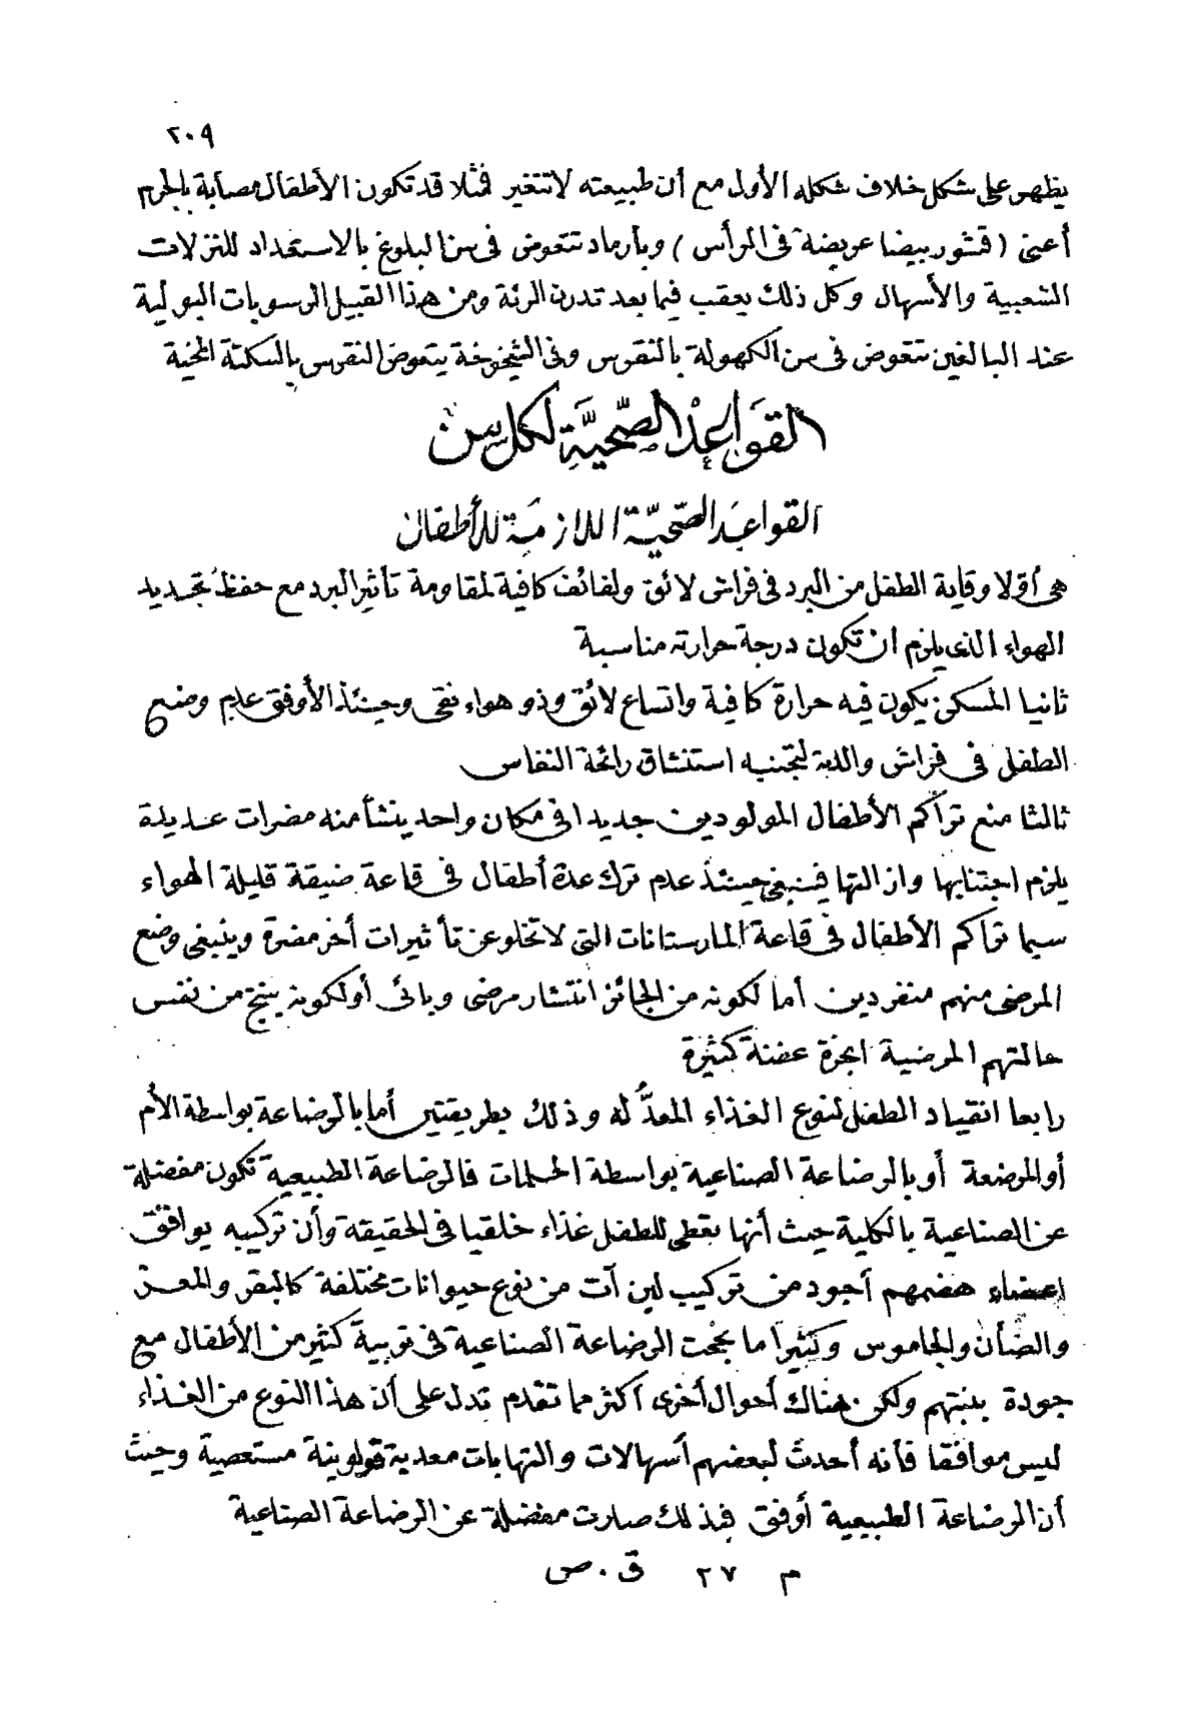 ٢٠٩
يظهر على شكل خلاف شكله الأول مع أن طبيعته لا تتغير فمثلا قد تكون الأطفال مصابة بالجرم
أعنى ( قشور بيضا عريضة فى الرأس ) وبأرماد تتعوض فى سن البلوغ بالاستعداد للنزلات
الشعبية والأسهال وكل ذلك يعقب فيما بعد تدرن الرئة ومن هذا القبيل الرسوبات البولية
عند البالغين تتعوض فى سن الكهولة بالنقرس وفى الشيخوخة يتعوض النقرس بالسكتة المخية
القوَاعِد الصّحيَّة لكل سن
القواعِد الصّحيّة اللازمَة للأطفال
هى أوّلا وقاية الطفل من البرد فى فراش لائق ولفائف كافية لمقاومة تأثير البرد مع حفظ تجديد
الهواء الذى يلزم ان تكون درجة حرارته مناسبة
ثانيا المسكن يكون فيه حرارة كافية واتساع لائق وذو هواء نقى وحينئذ الأوفق عدم وضع
الطفل فى فراش والدته لتجنبه استنشاق رائحة النفاس
ثالثا منع تراكم الأطفال المولودين جديدا فى مكان واحد ينشأ منه مضرات عديدة
يلزم اجتنابها وازالتها فينبغى حينئذ عدم ترك عدة أطفال فى قاعة ضيقة قليلة الهواء
سيما تراكم الأطفال فى قاعة المارستانات التى لا تخلو عن تأثيرات أخر مضرة وينبغى وضع
المرضى منهم منفردين أما لكونه من الجائز انتشار مرض وبائى أو لكونه ينتج من نفس
حالتهم المرضية ابخرة عفنة كثيرة
رابعا انقياد الطفل لنوع الغذاء المعدّ له وذلك بطريقتين أما بالرضاعة بواسطة الأم
أو المرضعة أو بالرضاعة الصناعية بواسطة الحلمات فالرضاعة الطبيعية تكون مفضلة
عن الصناعية بالكلية حيث أنها تعطى للطفل غذاء خلقيا فى الحقيقة وأن تركيبه يوافق
اعضاء هضمهم أجود من تركيب لبن آت من نوع حيوانات مختلفة كالبقر والمعز
والضأن والجاموس وكثيرا ما نجحت الرضاعة الصناعية فى تربية كثير من الأطفال مع
جودة بنيتهم ولكن هناك أحوال أخرى أكثر مما تقدم تدل على أن هذا النوع من الغذاء
ليس موافقا فأنه أحدث لبعضهم أسهالات والتهابات معدية قولونية مستعصية وحيث
أن الرضاعة الطبيعية أوفق فبذلك صارت مفضلة عن الرضاعة الصناعية
م ٢٧ ق . ص